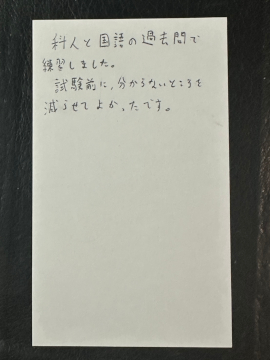 友人と国語の過去問で
練習しました。
試験前に、分からないところを
減らせてよかったです。